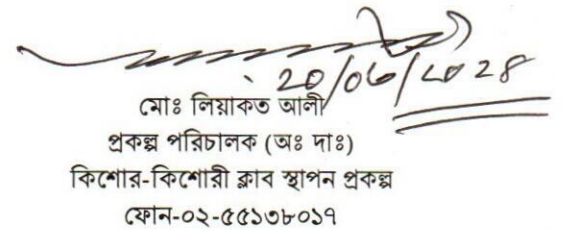 ২০/০৬/২০২৪
মোঃ লিয়াকত আলী
প্রকল্প পরিচালক (অঃ দাঃ)
কিশোর-কিশোরী ক্লাব স্থাপন প্রকল্প
ফোন-০২-৫৫১৩৮০১৭